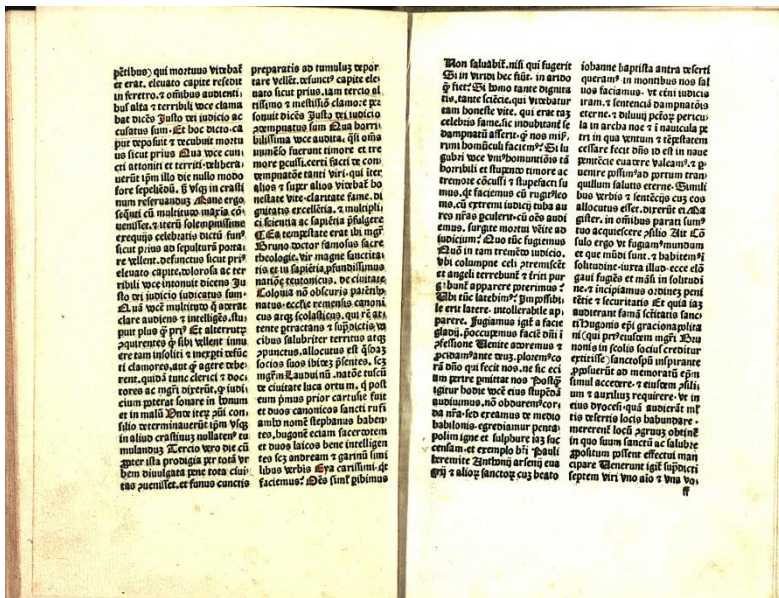 pētibus) qui mortuus videbat᷑
et erat. elevato capite resedit
in feretro. ⁊ om̄ibus audienti
bus alta ⁊ terribili voce clama
bat dicēs Justo dei iudicio ac
cusatus sum. Et hoc dicto. ca
put deposuit ⁊ decubuit mortu
us sicut prius Qua voce cun
cti attoniti et territi. delibera
uerūt ip̄m illo die nullo modo
fore sepeliēdū.
num reseruandus Mane ergo
sequēti cū multitudo maxia cō
uenisset. ⁊ iterū solempnissime
exequijs celebratis dictū funꝰ
sicut prius ad sepulturā porta
re vellent. defunctus sicut priꝰ
eleuato capite. dolorosa ac ter
ribili voce intonuit dicens Ju
sto dei iudicio iudicatus sum.
Quā vocē multitudo
clare audiens ⁊ intelligēs. stu
puit plus
ꝓquirentes
ere tam insoliti ⁊
ti clamores. aut qͥ agere debe
rent. quidā tunc clerici ⁊ doc
tores ac mgr̄i dixerūt.
cium poterat sonare in bonum
et in malū Unde
silio determinauerūt ip̄m vsqꝫ
in aliud crastinuꝫ nullatenꝰ tu
mulandus Tercio vero die cū
ꝓpter ista prodigia per totā vr
bem diuulgata pene tota ciui
tas ꝯuenisset. et funus cunctis
preparatis ad tumuluꝫ depor
tare vellēt. defunctꝰ capite ele
uato sicut prius. iam tercio al
tissimo ⁊ mestissiō clamore per
sonuit dicēs Justo dei iudicio
ꝯdempnatus sum Qua horri
bilissima voce audita. qͣsi om̄s
immēso fuerunt timore et tre
more ꝑcussi. certi facti de con
dempnatōe tanti viri. qui iter
alios ⁊ super alios videbat᷑ ho
nestate vite. claritate fame. di
gnitatis excellētia. ⁊ multipli
ci sciencia ac sapiētia ꝓfulgere
Ea tempestate erat ibi mgr̄
Bruno doctor famosus sacre
theologie. vir magne sanctita
tis et in sapiētia ꝓfundissimus
natiōe teutonicus. de ciuitate
Colonia nō obscuris parētib
natus. eccl̄ie remensis canoni
cus atqꝫ scolasticus. qui rē at
tente ꝑtractans ⁊ sup̄dictis vo
cibus salubriter territus atqꝫ
ꝯpunctus. allocutus est
socios suos ibidē p̄sentes. scꝫ
mgr̄m Landuinū. natōe tuscū
de ciuitate luca ortum. qͥ post
eum pͥmus prior cartusie fuit
et duos canonicos sancti rufi
ambo nomē stephanus haben
tes. hugonē eciam sacerdotem
et duos laicos bene intelligen
tes scꝫ andream ⁊ garinū simi
libus verbis Eya carissimi. qͥd
faciemus? Oēs siml̄ ꝑibimus
Non saluabit᷑. nisi qui fugerit
Si in viridi hec fiūt. in arido
qͥd fiet? Si homo tante dignita
tis. tante sciēcie. qui videbatur
tam honeste vite. qui erat tāꝫ
celebris fame. sic indubitanter se
dampnatū asserit. qͥd nos mise
rum homūculi faciemꝰ? Si lu
gubri voce
horribili et stupendo timore ac
tremore cōcussi ⁊ stupefacti su
mus. qͥd faciemus cū rugitꝰ leo
nis. cū extremi iudicij tuba au
res nr̄as ꝑculerit. cū oēs audi
emus. surgite mortui venite ad
iudicium? Quo tūc fugiemus
Quō in tam tremēdo iudicio.
vbi columpne celi ꝯtremiscēt
et angeli terrebunt᷑ ⁊ triti pur
gabunt᷑ apparere poterimus?
Ubi tūc latebimꝰ? Impossibi
le erit latere. intollerabile ap
parere. Fugiamus igit᷑ a facie
gladij. p̄occupemus faciē dn̄i ī
ꝯfessione Venite adoremus ⁊
ꝓcidamꝰ ante deuꝫ. ploremꝰ co
rā dn̄o qui fecit nos. ne sic eci
am perire ꝑmittat nos Postqͣꝫ
igitur hodie vocē eius stupēdā
audiuimus. nō obduremꝰ cor
da nr̄a. sed exeamus de medio
babilonis. egrediamur penta
polim igne et sulphure iaꝫ suc
censam. et exemplo bt̄i Pauli
heremite Anthonij arsenij eua
grij ⁊ alioꝝ sanctoꝝ cuꝫ beato
iohanne baptista antra deserti
queramꝰ in montibus nos sal
uos faciamus. vt eterni iudicis
iram. ⁊ sentenciā dampnatōis
eterne. ⁊ diluuij
la in archa noe ⁊ ī nauicula pe
tri in qua ventum ⁊ tēpestatem
cessare fecit dn̄s id est in naue
penitēcie euadere valeamꝰ. ⁊ ꝑ
uenire possimꝰ ad portum tran
quillum salutis eterne. Simili
bus verbis ⁊ sentēcijs cuꝫ eos
allocutus esset. dixerūt ei Ma
gister. in omībus parati sumꝰ
tuo acquiescere ꝯsilio Ait Cō
sulo ergo vt fugiamꝰ mundum
et que mūdi sunt. ⁊ habitemꝰ ī
solitudine. iuxta illud. ecce elō
gaui fugiēs et māsi in solitudi
ne. ⁊ incipiamus ordineꝫ peni
tētie ⁊ securitatis Et quia iaꝫ
audierant famā scītatis sanc
ti Hugonis epī gracionapolita
ni (qui priꝰ eiusdem mgr̄i Bru
nonis in scolis socius creditur
extitisse) sanctospū inspirante
ꝓposuerūt ad memoratū epm̄
simul accedere. ⁊ eiusdem ꝯsili
um ⁊ auxiliuꝫ requirere. vt in
eius dyocesi. quā audierāt ml̄
tis desertis locis habundare.
mererent᷑ locū ꝯgruuꝫ obtinē
in quo suum sanctū ac salubre
ꝓpositum possent effectui man
cipare Uenerunt igit᷑ sup̄dicti
septem viri vno aīo ⁊ vna vo
ff